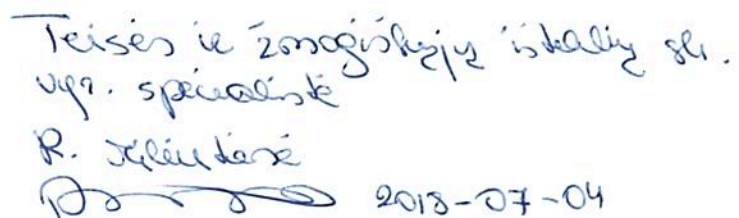 Teisės ir žmogiškųjų išteklių sk.
vyr. specialistė
R.
2018-07-04